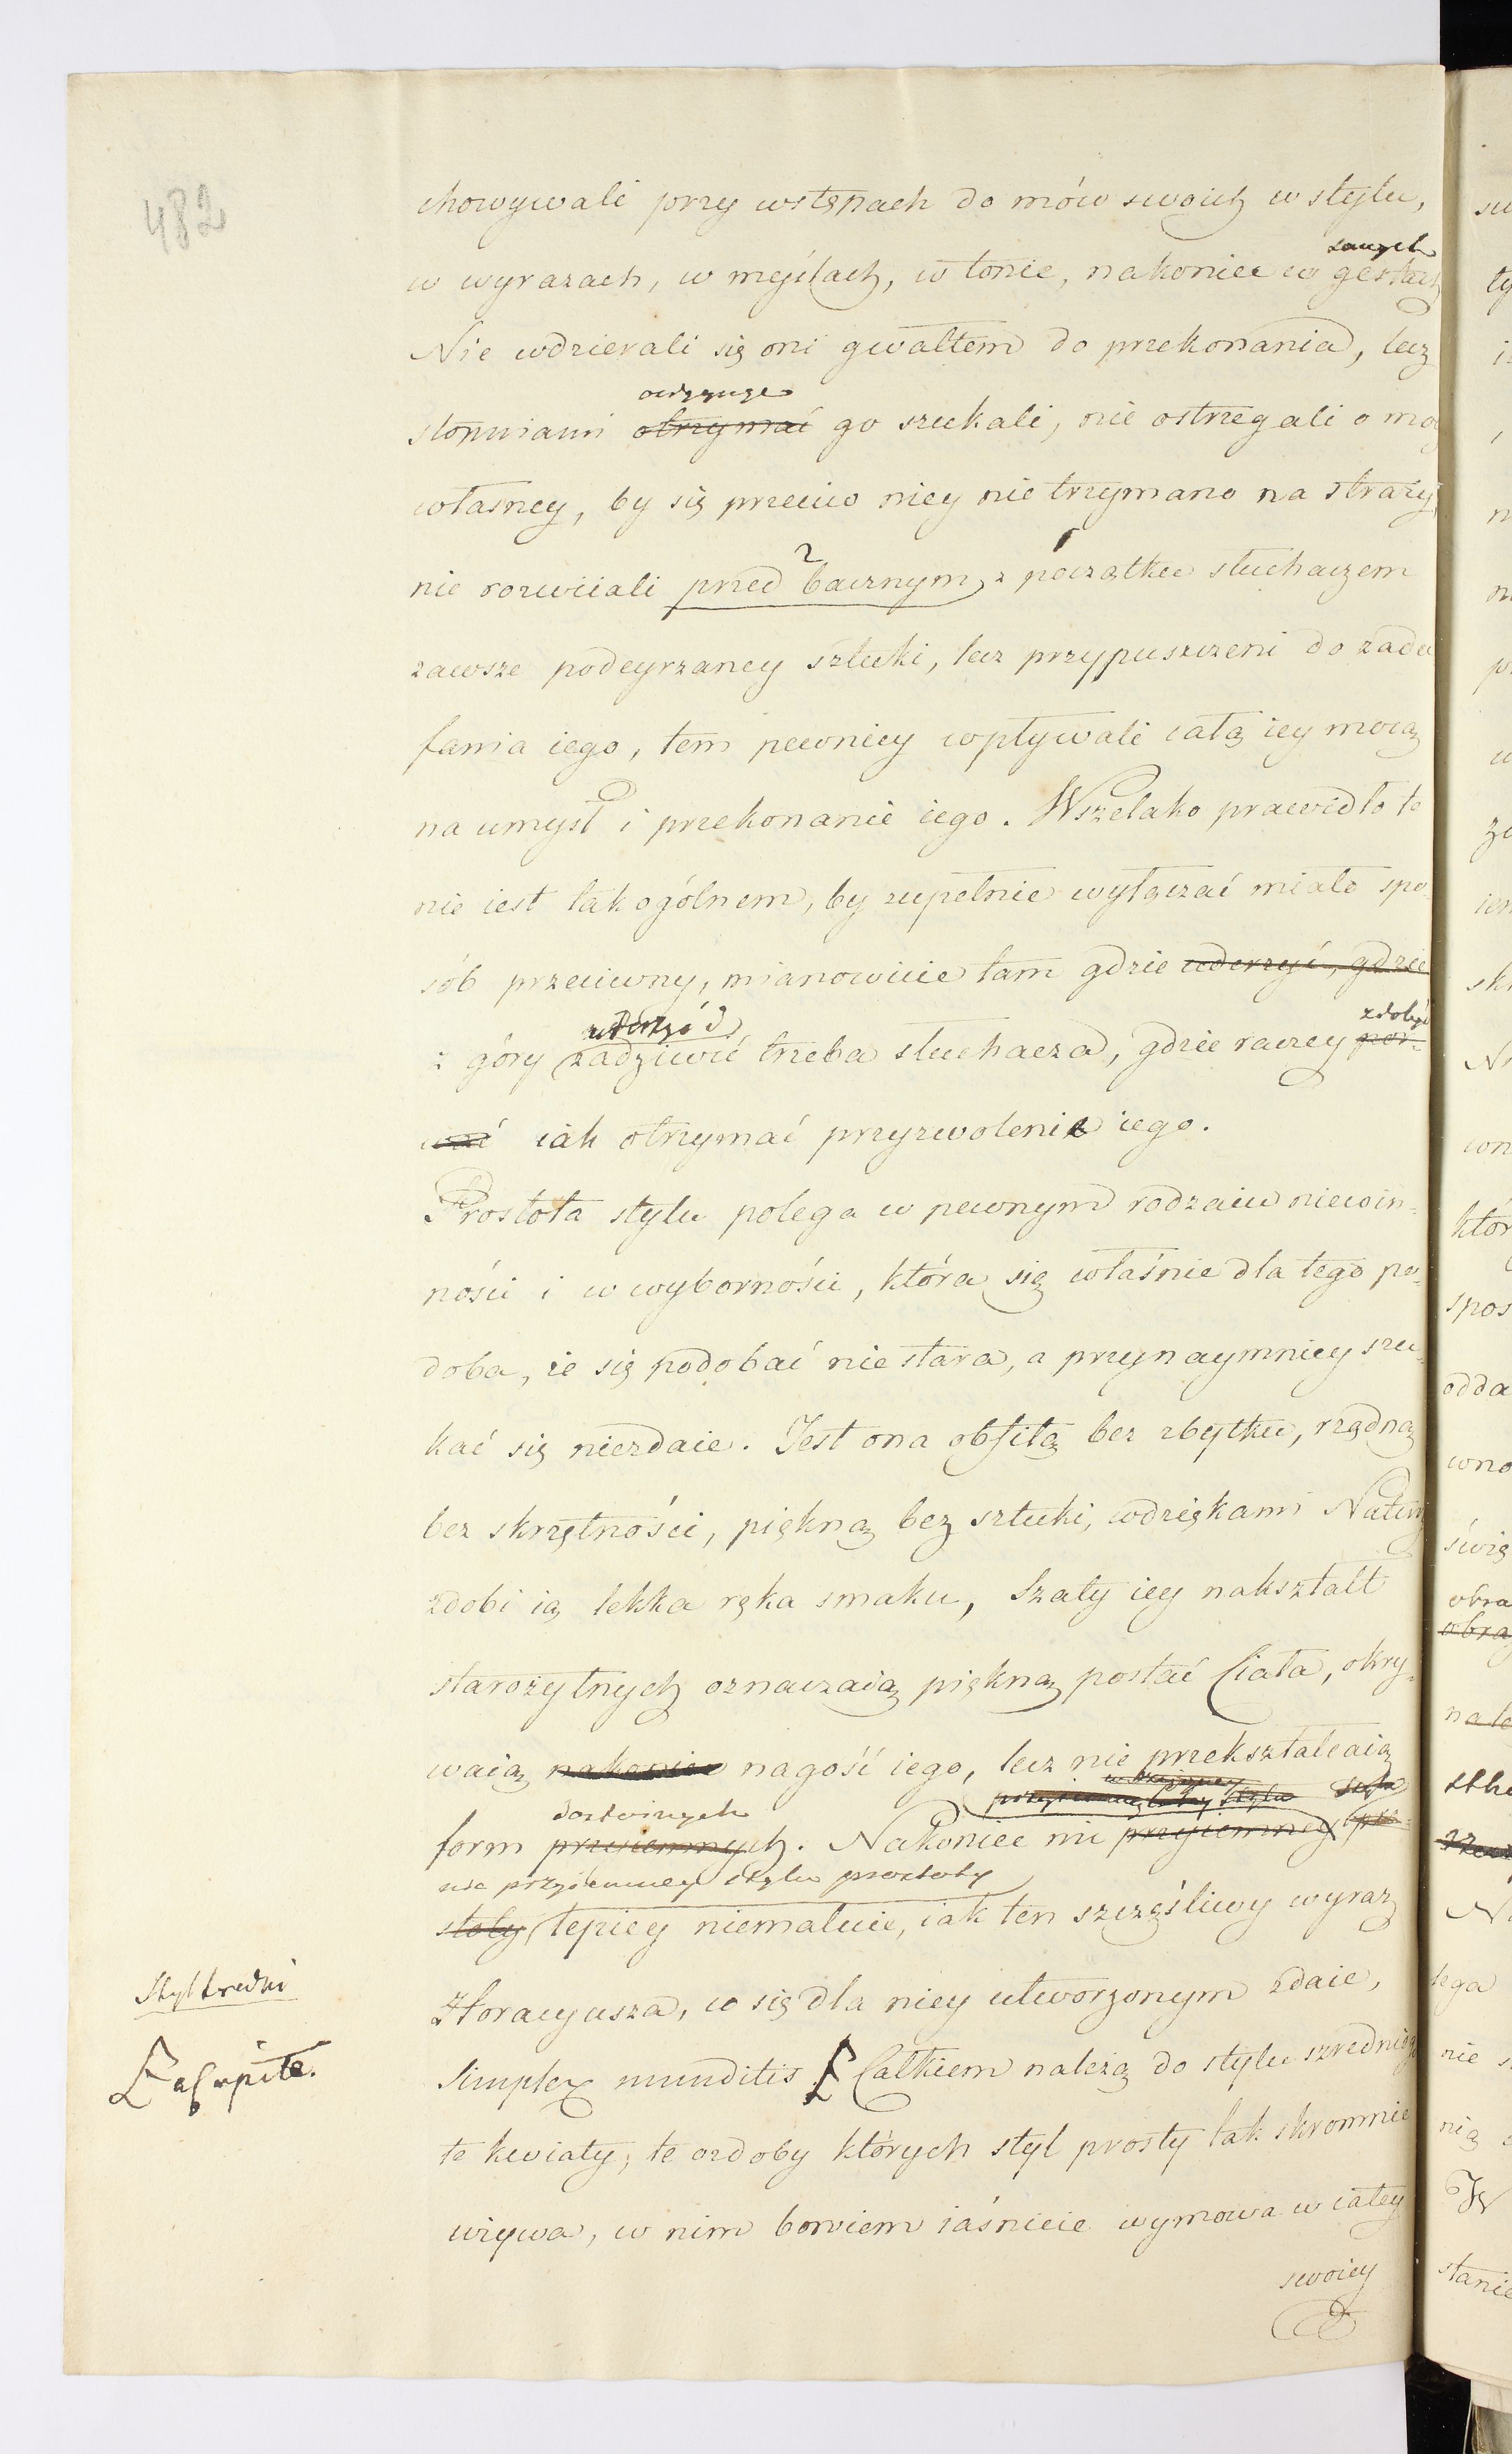 482
chowywali przy wstępach do mów swoich w stylu,
samych
w wyrazach, w myślach, w tonie, nakoniec w gestach
Nie wdzierali się oni gwałtem do przekonania, lecz
stopniami otrzymać go szukali, nie ostrzegali o mocy
własney, by się przeciw niey nie trzymano na straży,
2 1
nie rozwiiali przed bacznym z początku słuchaczem
zawsze podeyrzaney sztuki, lecz przypuszczeni do zadu
fania iego, tem pewniey wpływali całą iey mocą
na umysł i przekonanie iego. Wszelako prawidło to
nie iest tak ogólnem, by zupełnie wyłączać miało spo-
sób przeciwny, mianowicie tam gdzie uderzyć, gdzie
uderzyć zdobyć
z góry zadziwić trzeba słuchacza, gdzie raczey por-
wać iak otrzymać przyzwolenie iego.
Prostota stylu polega w pewnym rodzaiu niewin-
ności i w wyborności, która się właśnie dla tego po-
doba, że się podobać nie stara, a przynaymniey szu-
kać się niezdaie. Jest ona obfitą bez zbytku, rządną
bez skrzętności, piękną bez sztuki, wdziękami Natury
zdobi ią lekka ręka smaku, Szaty iey nakształt
starożytnych oznaczaią piękną postać Ciała, okry-
waią nakoniec nagość iego, lecz nie przekształcaią
przyiemney stylu
form przyiemnych. Nakoniec nic przyiemney pro-
nic przyiemney stylu prostoty
stoty lepiey niemaluie, iak ten szczęśliwy wyraz
Styl średni
Horacyusza, co się dla niey utworzonym zdaie,
Simplex munditis Całkiem należą do stylu szredniego
a capite.
te kwiaty, te ozdoby których styl prosty tak skromnie
używa, w nim bowiem iaśnieie wymowa w całey
swoiey